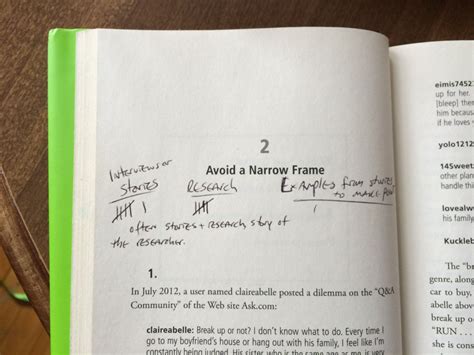 2
Avoid a Narrow Frame
Interviews or
Stories
Research
Examples from
to make point
often stories + research, story of
the researcher.
1.
In July 2012, a user named claireabelle posted a dilemma on the “Q&A
Community” of the Web site Ask.com:
claireabelle: Break up or not? I don’t know what to do. Every time I
go to my boyfriend’s house or hang out with his family, I feel like I’m
constantly being judged. His sister who is the same age as me is
eimis7452
up for her.
[bleep] then
him becaus
if he loves
yolo1212
14Sweet
other plan
handle th
lovealw
his famil
Kuckleb
The “b
genre, along
car to buy,
abelle above
“RUN . . .
she is cons